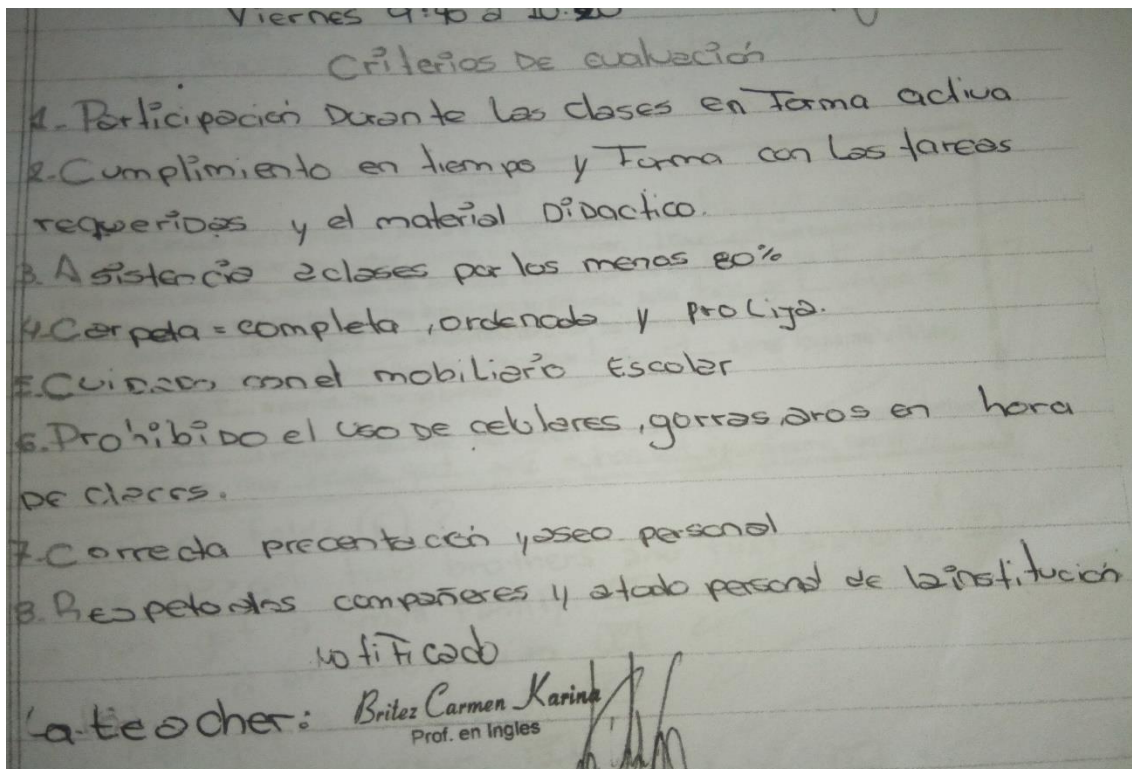 Viernes 9:40 a 10:20
Criterios De evaluación
1.- Participación Durante las clases en Forma activa
2.- Cumplimiento en tiempo y Forma con las tareas
requeridas y el material DiDactico.
3. Asistencia a clases por los menos 80%
4. Carpeta = completa, ordenada y prolija.
5. Cuidado con el mobiliario Escolar
6. Prohibido el uso De celulares, gorras, aros en hora
De clases.
7. Correcta precentación y aseo personal
8. Respeto a los compañeres y a todo personal de la institución
Notificado
La teacher: Britez Carmen Karina
Prof. en Ingles